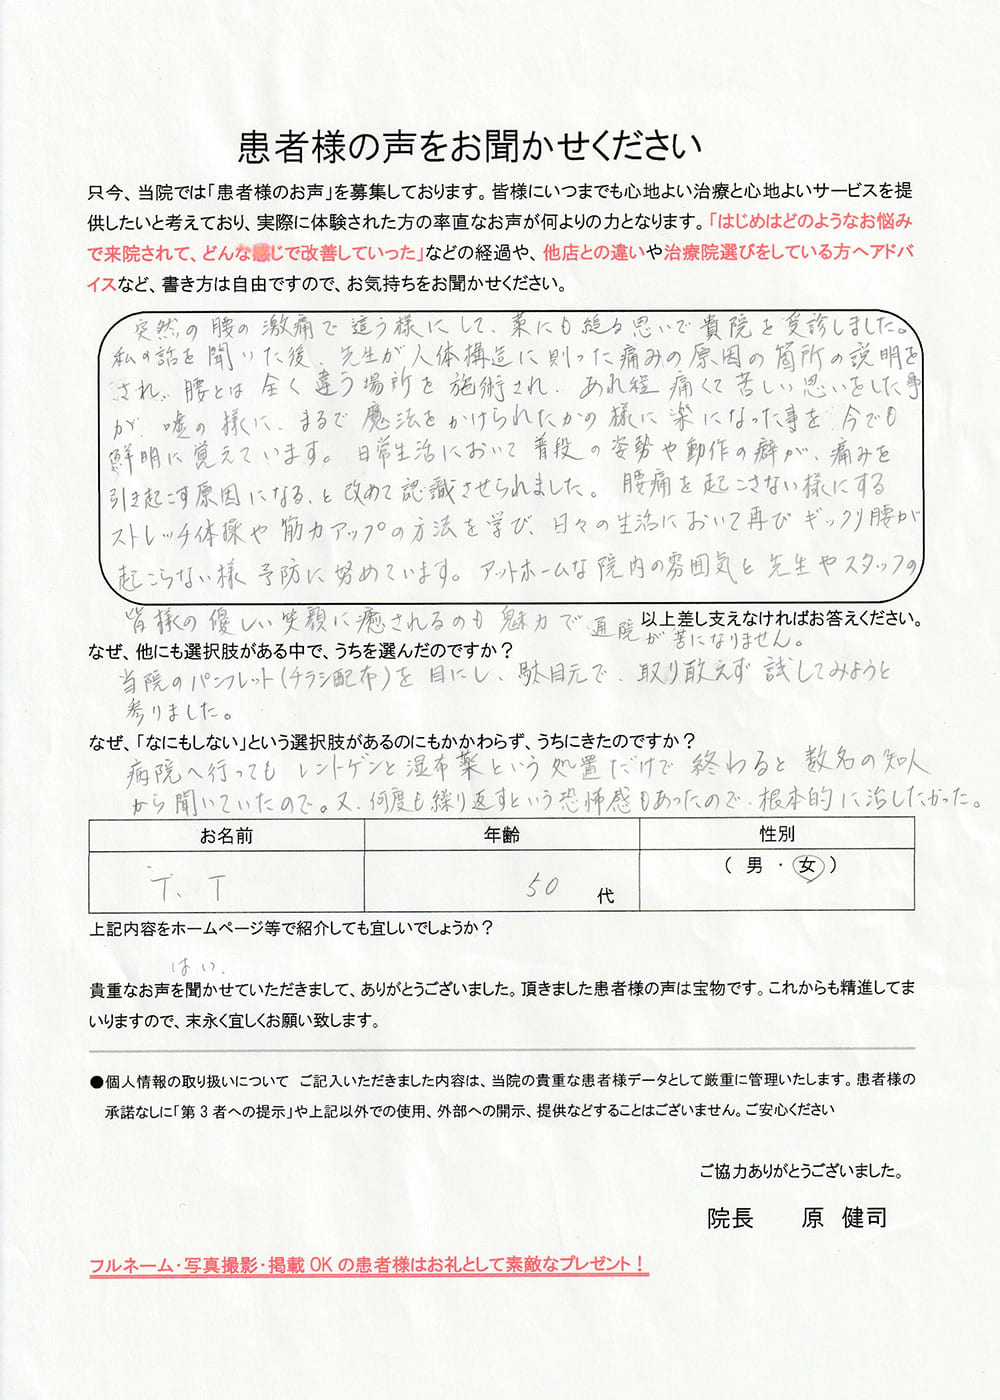 患者様の声をお聞かせください
只今、当院では「患者様のお声」を募集しております。皆様にいつまでも心地よい治療と心地よいサービスを提
供したいと考えており、実際に体験された方の率直なお声が何よりの力となります。「はじめはどのようなお悩み
で来院されて、どんな感じで改善していった」などの経過や、他店との違いや治療院選びをしている方へアドバ
イスなど、書き方は自由ですので、お気持ちをお聞かせください。
突然の腰の激痛で這う様にして、藁にも縋る思いで貴院を受診しました。
私の話を聞いた後、先生が人体構造に則った痛みの原因の箇所の説明を
され、腰とは全く違う場所を施術され、あれ程痛くて苦しい思いをした事
が、嘘の様に、まるで魔法をかけられたかの様に楽になった事を、今でも
鮮明に覚えています。日常生活において普段の姿勢や動作の癖が、痛みを
引き起こす原因になる、と改めて認識させられました。腰痛を起こさない様にする
ストレッチ体操や筋力アップの方法を学び、日々の生活において再びギックリ腰が
起こらない様予防に努めています。アットホームな院内の雰囲気と先生やスタッフの
皆様の優しい笑顔に癒されるのも魅力で、通院が苦になりません。
以上差し支えなければお答えください。
なぜ、他にも選択肢がある中で、うちを選んだのですか？
当院のパンフレット(チラシ配布)を目にし、駄目元で、取り敢えず試してみようと
参りました。
なぜ、「なにもしない」という選択肢があるのにもかかわらず、うちにきたのですか？
病院へ行ってもレントゲンと湿布薬という処置だけで終わると数名の知人
から聞いていたので。又、何度も繰り返すという恐怖感もあったので、根本的に治したかった。
お名前 年齢 性別
T.T 50 代 （ 男 ・ 女 ）
上記内容をホームページ等で紹介しても宜しいでしょうか？
はい.
貴重なお声を聞かせていただきまして、ありがとうございました。頂きました患者様の声は宝物です。これからも精進してま
いりますので、末永く宜しくお願い致します。
●個人情報の取り扱いについて ご記入いただきました内容は、当院の貴重な患者様データとして厳重に管理いたします。患者様の
承諾なしに「第３者への提示」や上記以外での使用、外部への開示、提供などすることはございません。ご安心ください
ご協力ありがとうございました。
院長 原 健司
フルネーム・写真撮影・掲載OKの患者様はお礼として素敵なプレゼント！